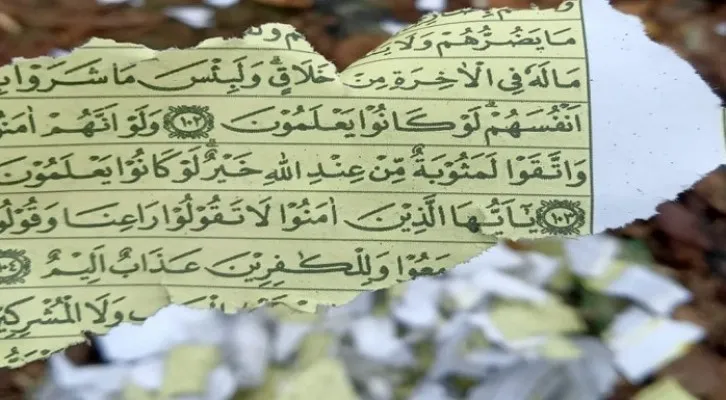 مَا يَضُرُّهُمْ وَلَا
مَا لَهٗ فِي الْاٰخِرَةِ مِنْ خَلَاقٍ ۗ وَلَبِئْسَ مَا شَرَوْا
اَنْفُسَهُمْ ۗ لَوْ كَانُوْا يَعْلَمُوْنَ ١٠٢ وَلَوْ اَنَّهُمْ اٰمَنُ
وَاتَّقَوْا لَمَثُوْبَةٌ مِّنْ عِنْدِ اللّٰهِ خَيْرٌ ۗ لَوْ كَانُوْا يَعْلَمُوْنَ
١٠٣ يٰٓاَيُّهَا الَّذِيْنَ اٰمَنُوْا لَا تَقُوْلُوْا رَاعِنَا وَقُوْلُو
مَعُوْا وَلِلْكٰفِرِيْنَ عَذَابٌ اَلِيْمٌ ١٠٤
وَلَا الْمُشْرِكِيْ